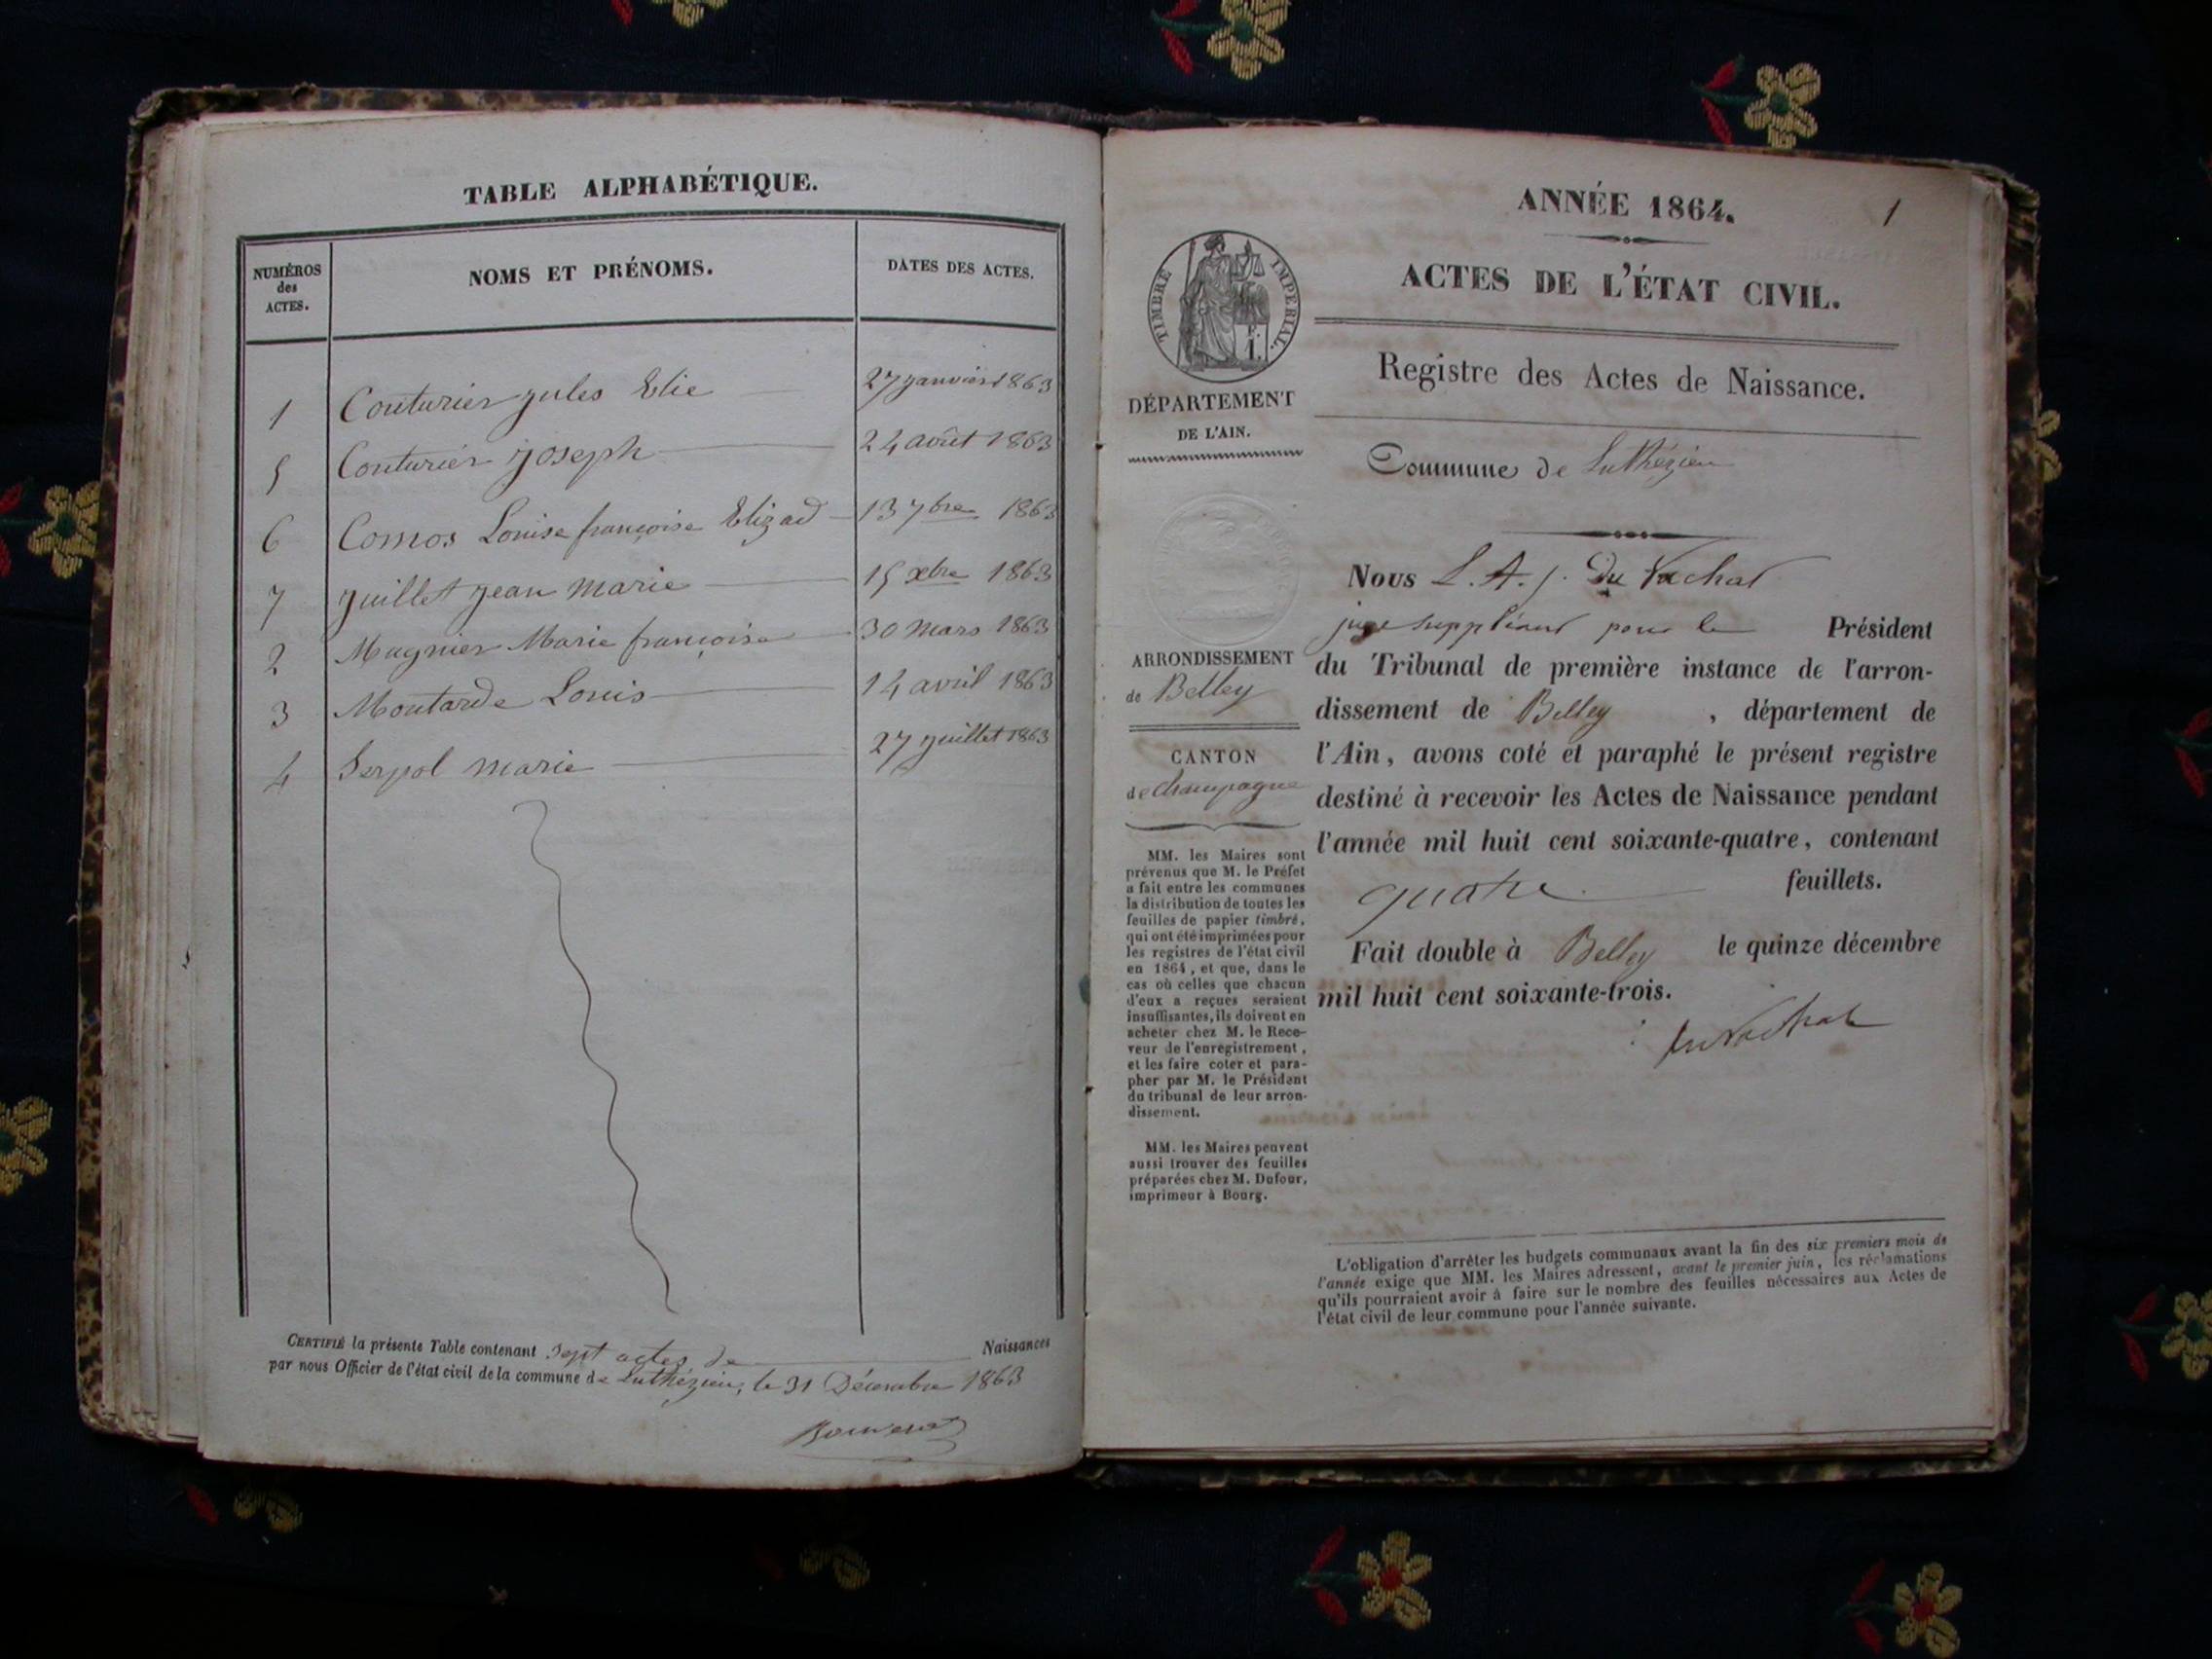 TABLE ALPHABÉTIQUE.
NUMÉROS
des
ACTES.
NOMS ET PRÉNOMS.
DATES DES ACTES.
1 Couturier jules Elie 27 janvier 1863
5 Couturier joseph 24 août 1863
6 Louise françoise 13 7bre 1863
7 juillet jean marie 15 xbre 1863
2 Magnier Marie françoise 30 mars 1863
3 Moutarde Louis 14 avril 1863
4 Serpol marie 27 juillet 1863
CERTIFIÉ la présente Table contenant Sept actes de Naissances
par nous Officier de l'état civil de la commune de Luthézieu, le 31 Décembre 1863
ANNÉE 1864.
1
ACTES DE L'ÉTAT CIVIL.
Registre des Actes de Naissance.
Commune de Luthézieu
TIMBRE IMPÉRIAL.
DÉPARTEMENT
DE L'AIN.
ARRONDISSEMENT
de Belley
CANTON
de champagne
MM. les Maires sont
prévenus que M. le Préfet
a fait entre les communes
la distribution de toutes les
feuilles de papier timbré,
qui ont été imprimées pour
les registres de l'état civil
en 1864, et que, dans le
cas où celles que chacun
d'eux a reçues seraient
insuffisantes, ils doivent en
acheter chez M. le Rece-
veur de l'enregistrement,
et les faire coter et para-
pher par M. le Président
du tribunal de leur arron-
dissement.
MM. les Maires peuvent
aussi trouver des feuilles
préparées chez M. Dufour,
imprimeur à Bourg.
Nous L. A. J. Du Vachat
juge suppléant pour le Président
du Tribunal de première instance de l'arron-
dissement de Belley, département de
l'Ain, avons coté et paraphé le présent registre
destiné à recevoir les Actes de Naissance pendant
l'année mil huit cent soixante-quatre, contenant
quatre feuillets.
Fait double à Belley le quinze décembre
mil huit cent soixante-trois.
du Vachat
L'obligation d'arrêter les budgets communaux avant la fin des six premiers mois de
l'année exige que MM. les Maires adressent, avant le premier juin, les réclamations
qu'ils pourraient avoir à faire sur le nombre des feuilles nécessaires aux Actes de
l'état civil de leur commune pour l'année suivante.